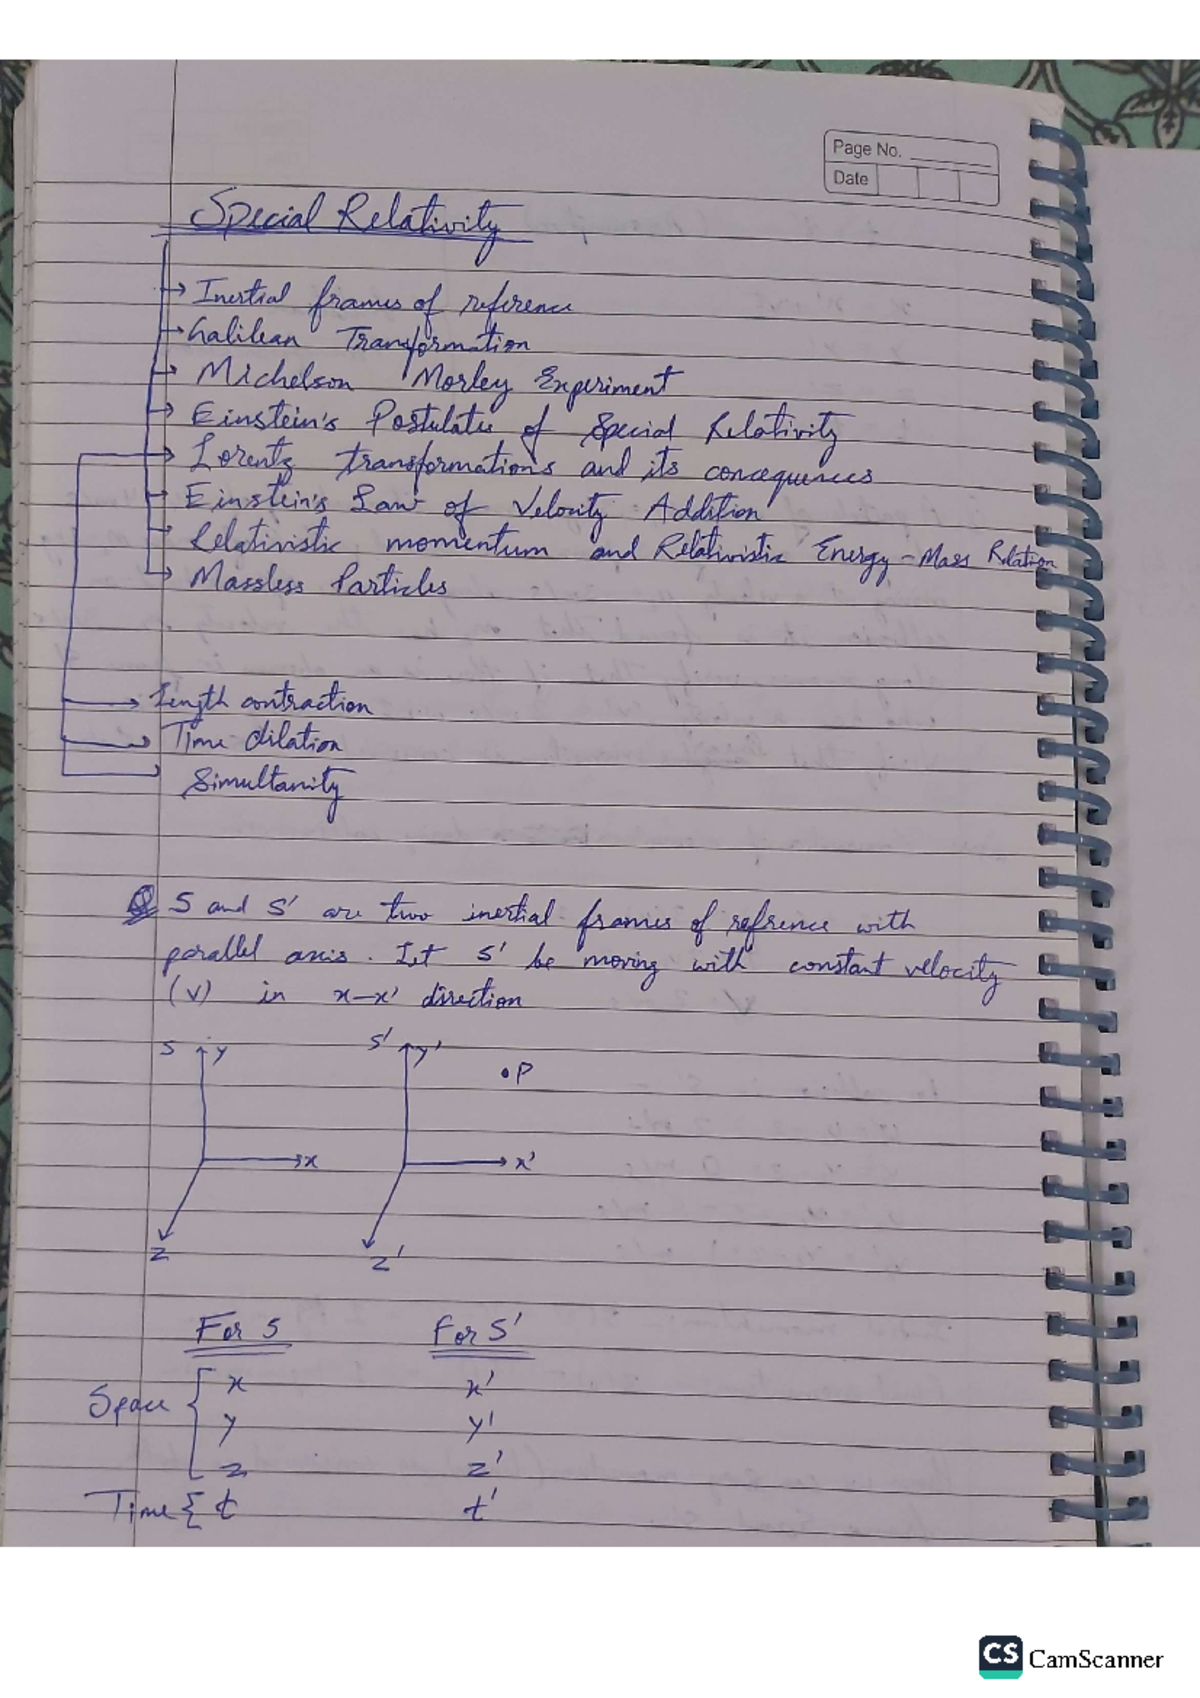 Page No.
Date
Special Relativity
→ Inertial frames of reference
→ Galilean Transformation
→ Michelson Morley Experiment
→ Einstein's Postulates of Special Relativity
→ Lorentz transformations and its concequences
→ Einstein's Law of Velocity Addition
→ Relativistic momentum and Relativistic Energy - Mass Relation
→ Massless Particles
→ Length contraction
→ Time dilation
Simultanity
Q S and S' are two inertial frames of refrence with
parallel axis. Let S' be moving with constant velocity
(v) in x-x' direction
S y S' y'
P
x x'
z z'
For S For S'
Space { x x'
y y'
z z'
Time { t t'
CS CamScanner